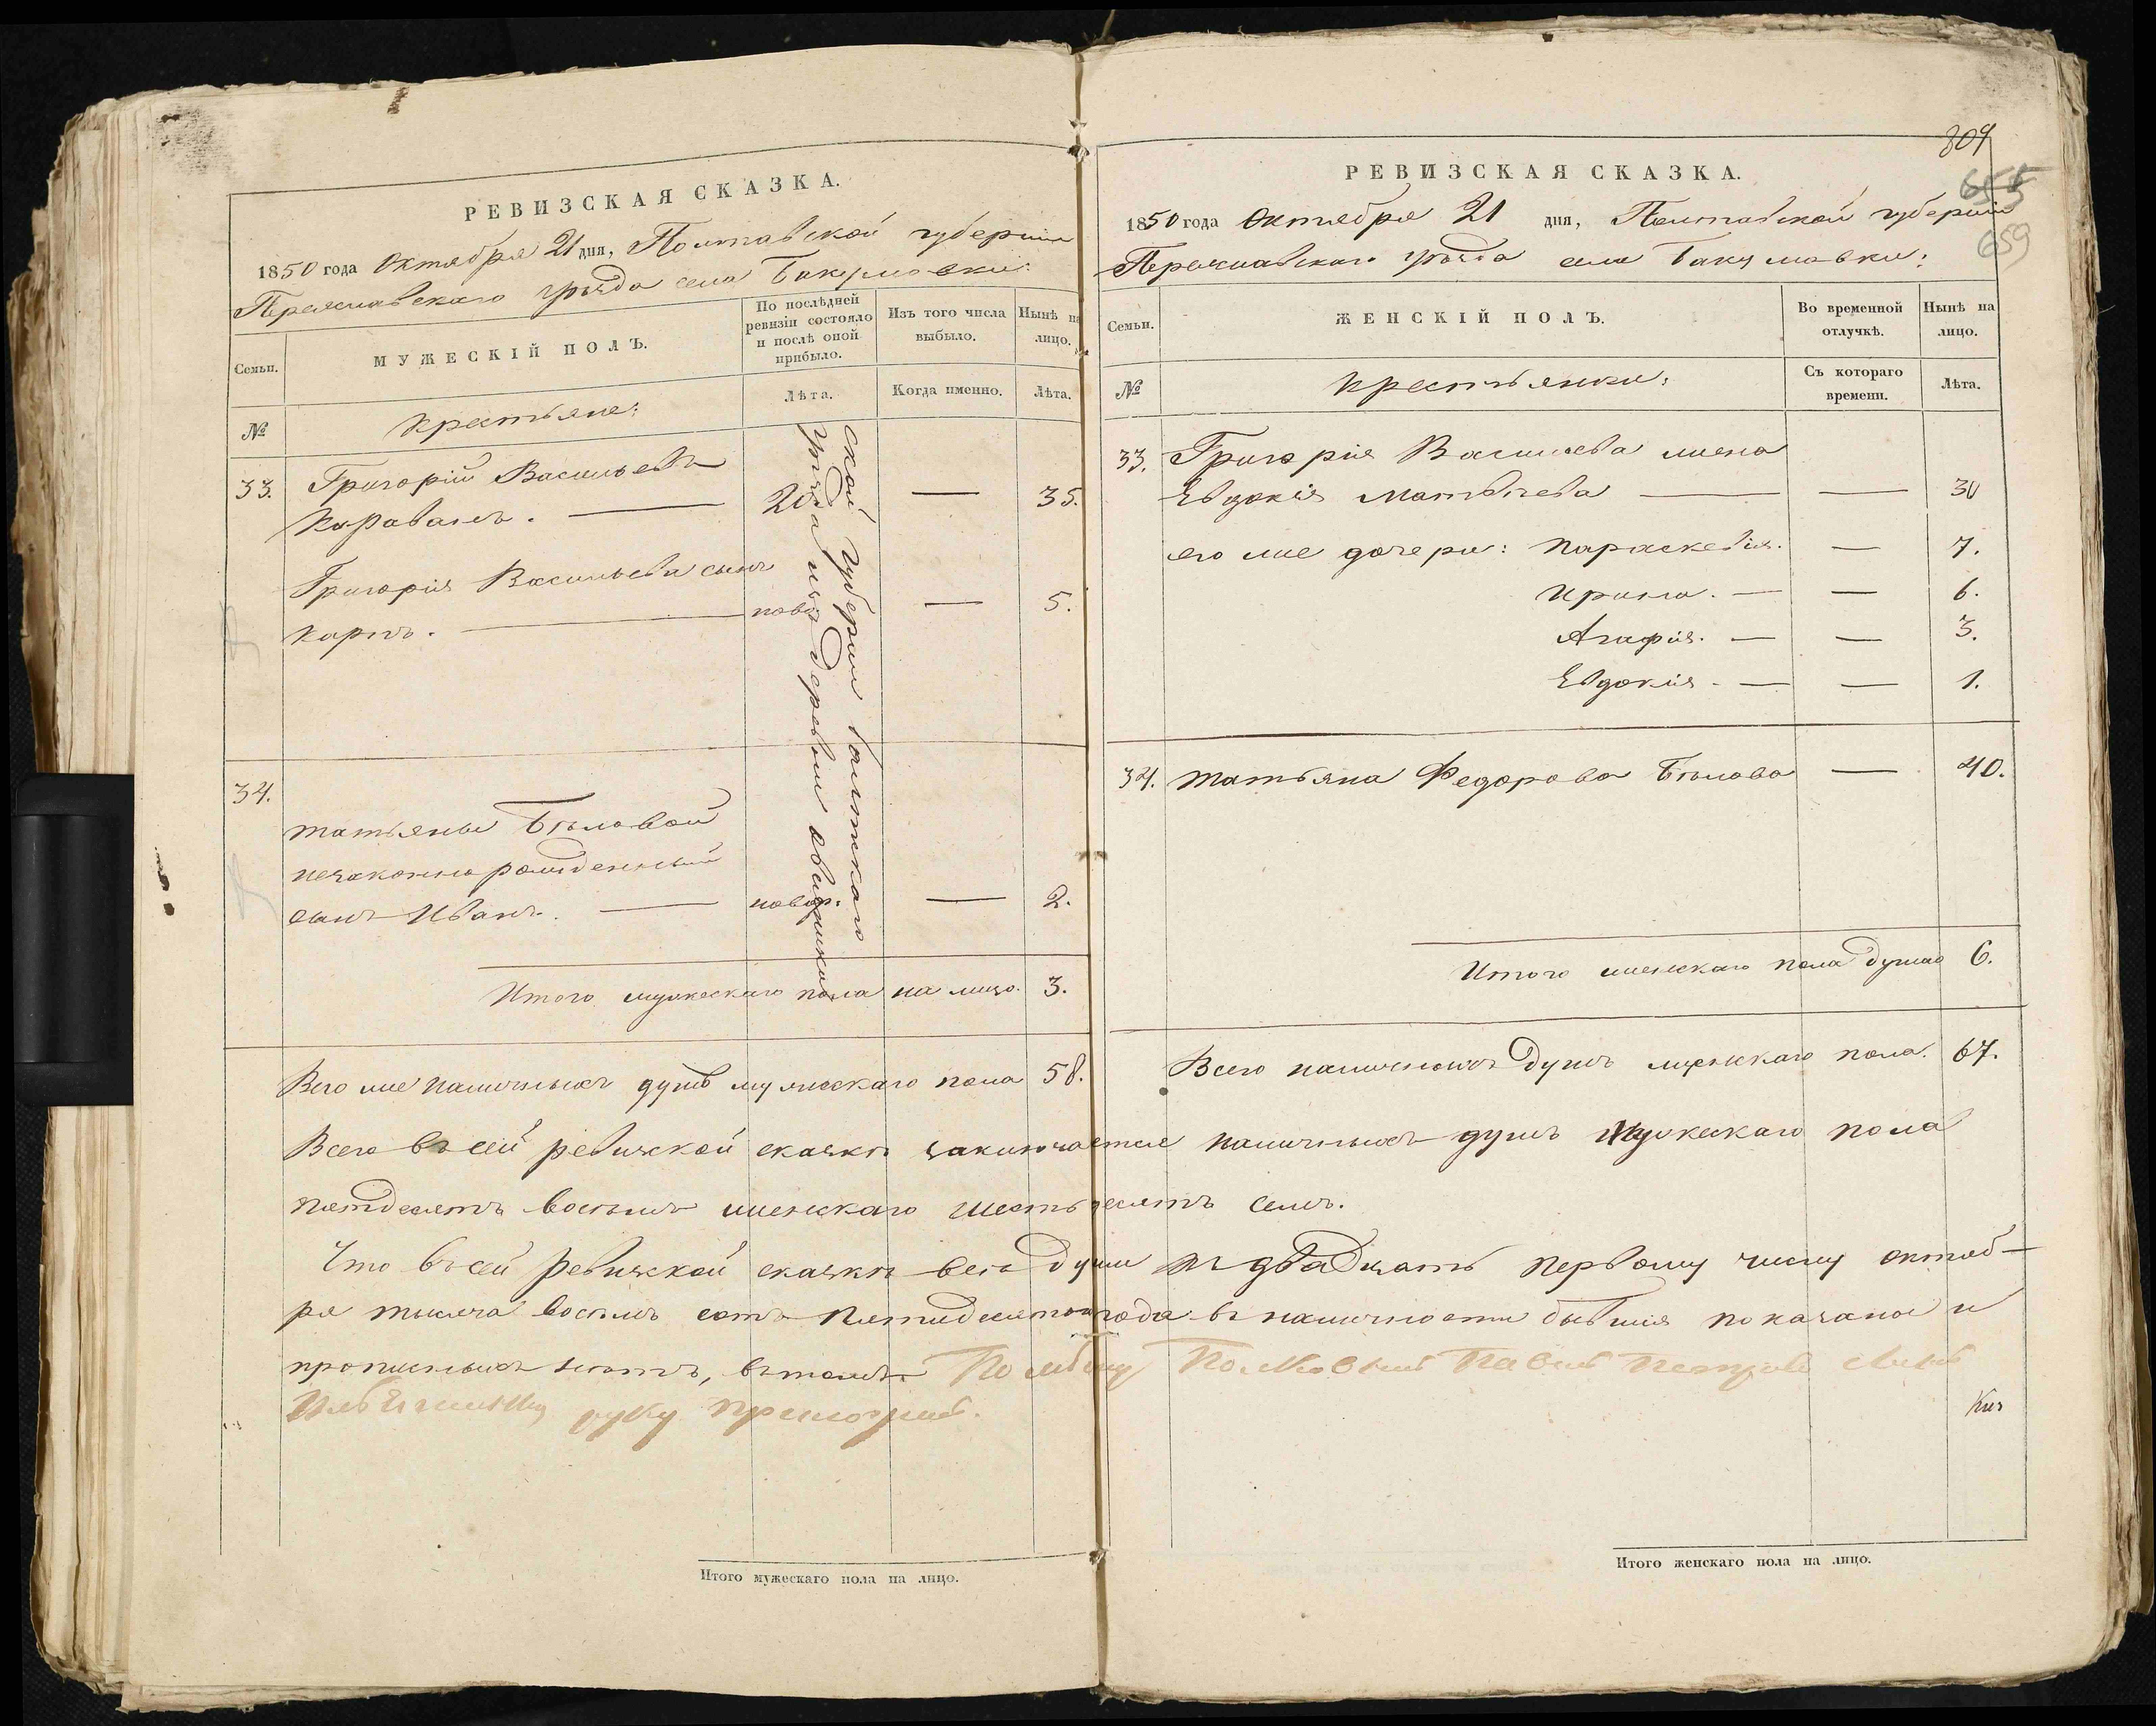 РЕВИЗСКАЯ СКАЗКА.
1850 года Октября 21 дня, Полтавской губерніи
Переяславскаго уѣзда села Бакумовки:
Семьи.
МУЖЕСКІЙ ПОЛЪ.
По послѣдней ревизіи состояло и послѣ оной прибыло.
Изъ того числа выбыло.
Нынѣ на лицо.
№
Крестьяне:
Лѣта.
Когда именно.
Лѣта.
33. Григорій Васильевъ
Караванъ. — 20 — 35.
Григорія Васильева сынъ
Карпъ. — ново — 5.
ской губерніи Балтскаго
уѣзда изъ деревни
34.
Татьяны Бѣловой
незаконнорожденный
сынъ Иванъ. — новор. — 2.
Итого мужескаго пола на лицо. 3.
Всего же наличныхъ душъ мужескаго пола 58.
809
655
659
РЕВИЗСКАЯ СКАЗКА.
1850 года Октября 21 дня, Полтавской губерніи
Переяславскаго уѣзда села Бакумовки:
Семьи.
ЖЕНСКІЙ ПОЛЪ.
Во временной отлучкѣ.
Нынѣ на лицо.
№
Крестьянки:
Съ котораго времени.
Лѣта.
33. Григорія Васильева жена
Евдокія Матвѣева — — 30
его же дочери: Параскевія. — 7.
Ирина. — — 6.
Агафія. — — 3.
Евдокія. — — 1.
34. Татьяна Федорова Бѣлова — 40.
Итого женскаго пола душъ 6.
Всего наличныхъ душъ женскаго пола. 67.
Всего въ сей ревизской сказкѣ заключается наличныхъ душъ мужескаго пола
пятдесятъ восемь женскаго шестьдесятъ семь.
Что въ сей ревизской сказкѣ все души къ двадцать первому числу октяб-
ря тысяча восемь сотъ пятидесятого года въ наличности бывшія показаны и
прописныхъ нѣтъ, въ томъ Павелъ Петровъ сынъ
руку приложилъ.
Итого мужескаго пола на лицо.
Итого женскаго пола на лицо.